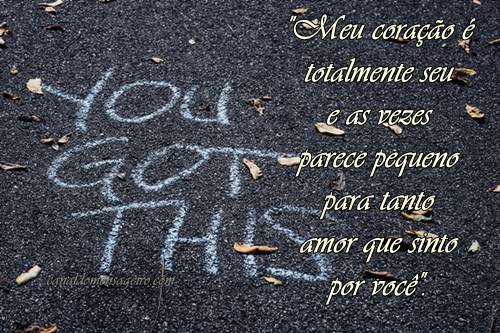 YOU
GOT
THIS
"Meu coração é
totalmente seu
e as vezes
parece pequeno
para tanto
amor que sinto
por você".